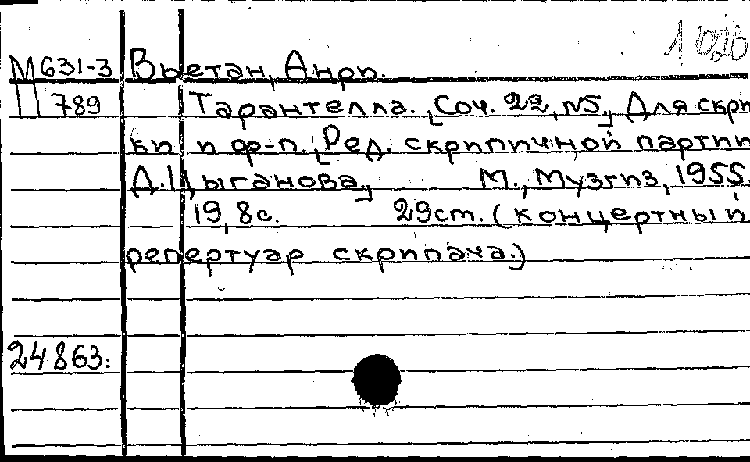 М631-3 Вьетан, Анри.
789 Тарантелла. [Соч. 22, №5] Для скрип
ки и ф-п. [Ред. скрипичной партии
Д. Цыганова] М., Музгиз, 1955.
19, 8 с. 29 cm. (концертный
репертуар скрипача.)
24863: